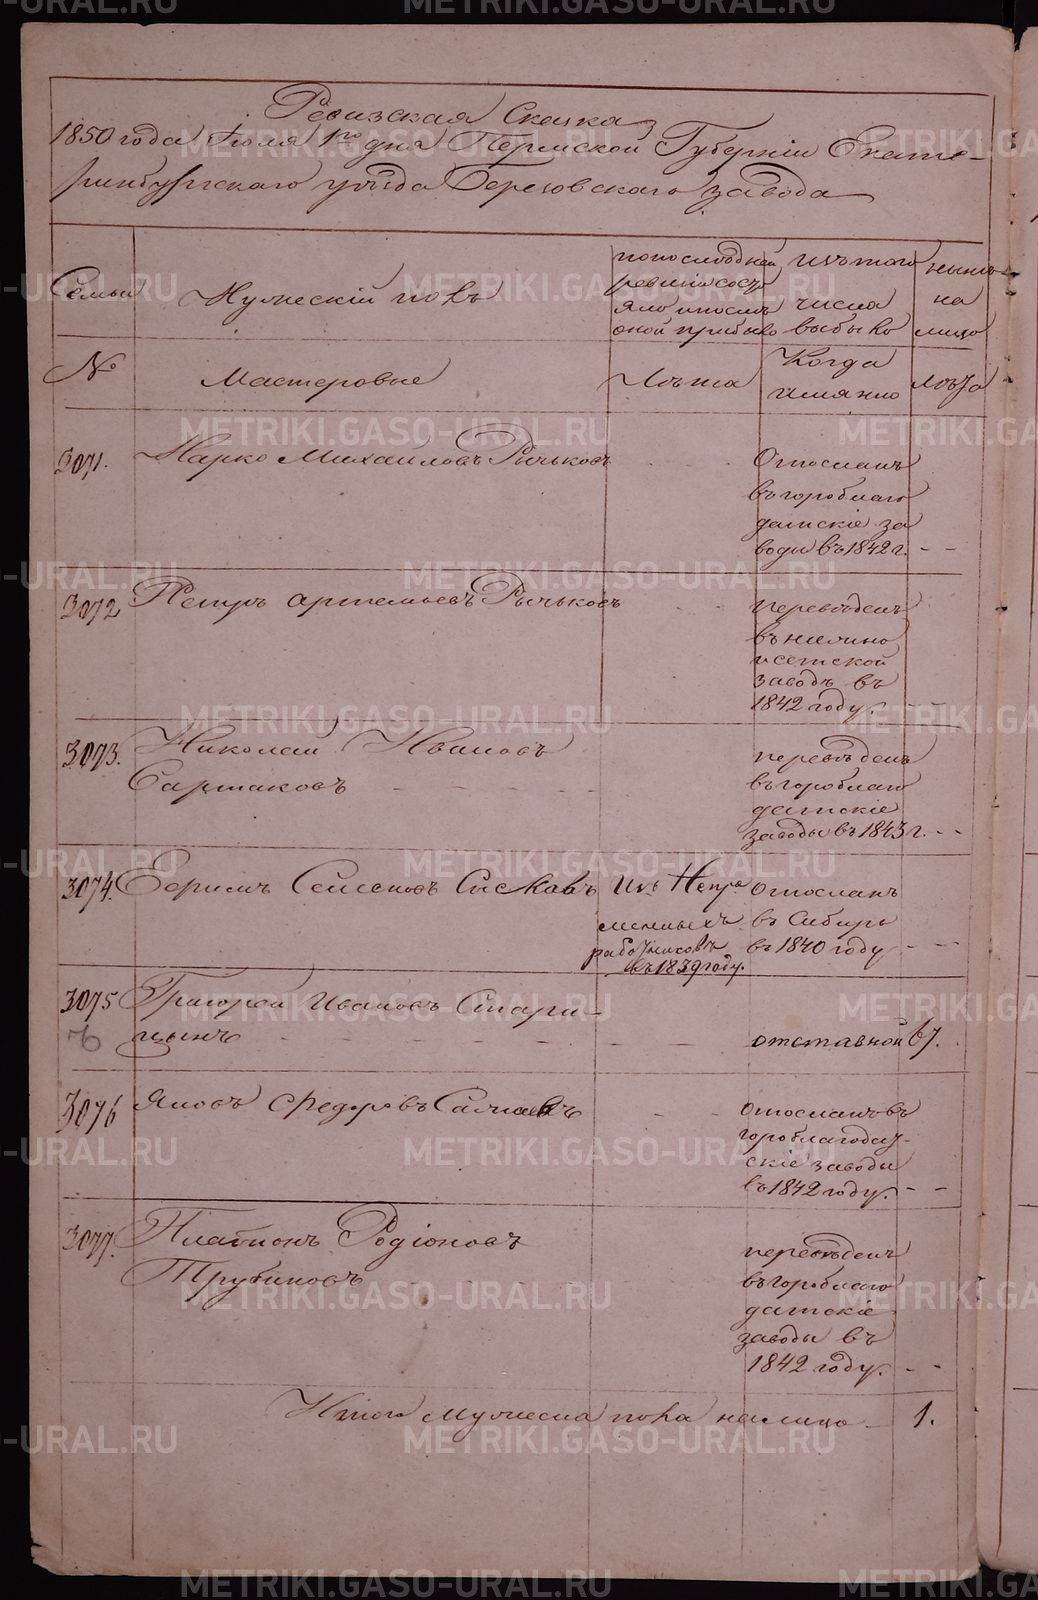 Ревизская Сказка
1850 года Іюля 1го дня Пермской Губерніи Екате-
ринбургскаго уѣзда Березовскаго завода
Семьи
Мужескій полъ
по последней
ревизіи состо
яло и после
оной прибыло
изъ того
числа
выбыло
нынѣ
на
лицо
№
Мастеровые
Лѣта
Когда
имянно
лѣта
3071.
Марко Михаиловъ Рычьковъ
Отосланъ
въ гороблаго
датскіе за
воды въ 1842 г.
3072
Петръ Артемьевъ Рычьковъ
переведенъ
въ нижно
исетской
заводъ въ
1842 году.
3073.
Николай Ивановъ
Сартаковъ
переведенъ
въ гороблаго
датскіе
заводы въ 1843 г.
3074.
Ефримъ Семеновъ Сысковъ
Изъ Непре
менныхъ
работниковъ
въ 1839 году.
отосланъ
въ Сибирь
въ 1840 году
3075
Григорей Ивановъ Стари-
цынъ
отставной
67.
3076
Яковъ Федоровъ
отосланъ въ
гороблагодат-
скіе заводы
въ 1842 году.
3077.
Платонъ Родіоновъ
Трубиновъ
переведенъ
въ гороблаго
датскіе
заводы въ
1842 году.
Итого мужеска пола на лицо
1.
METRIKI.GASO-URAL.RU